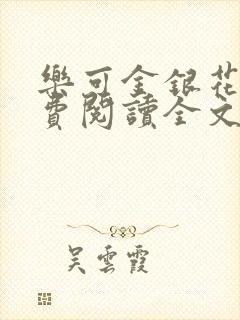 樂可金銀花
費閱讀全文
吳雲霞